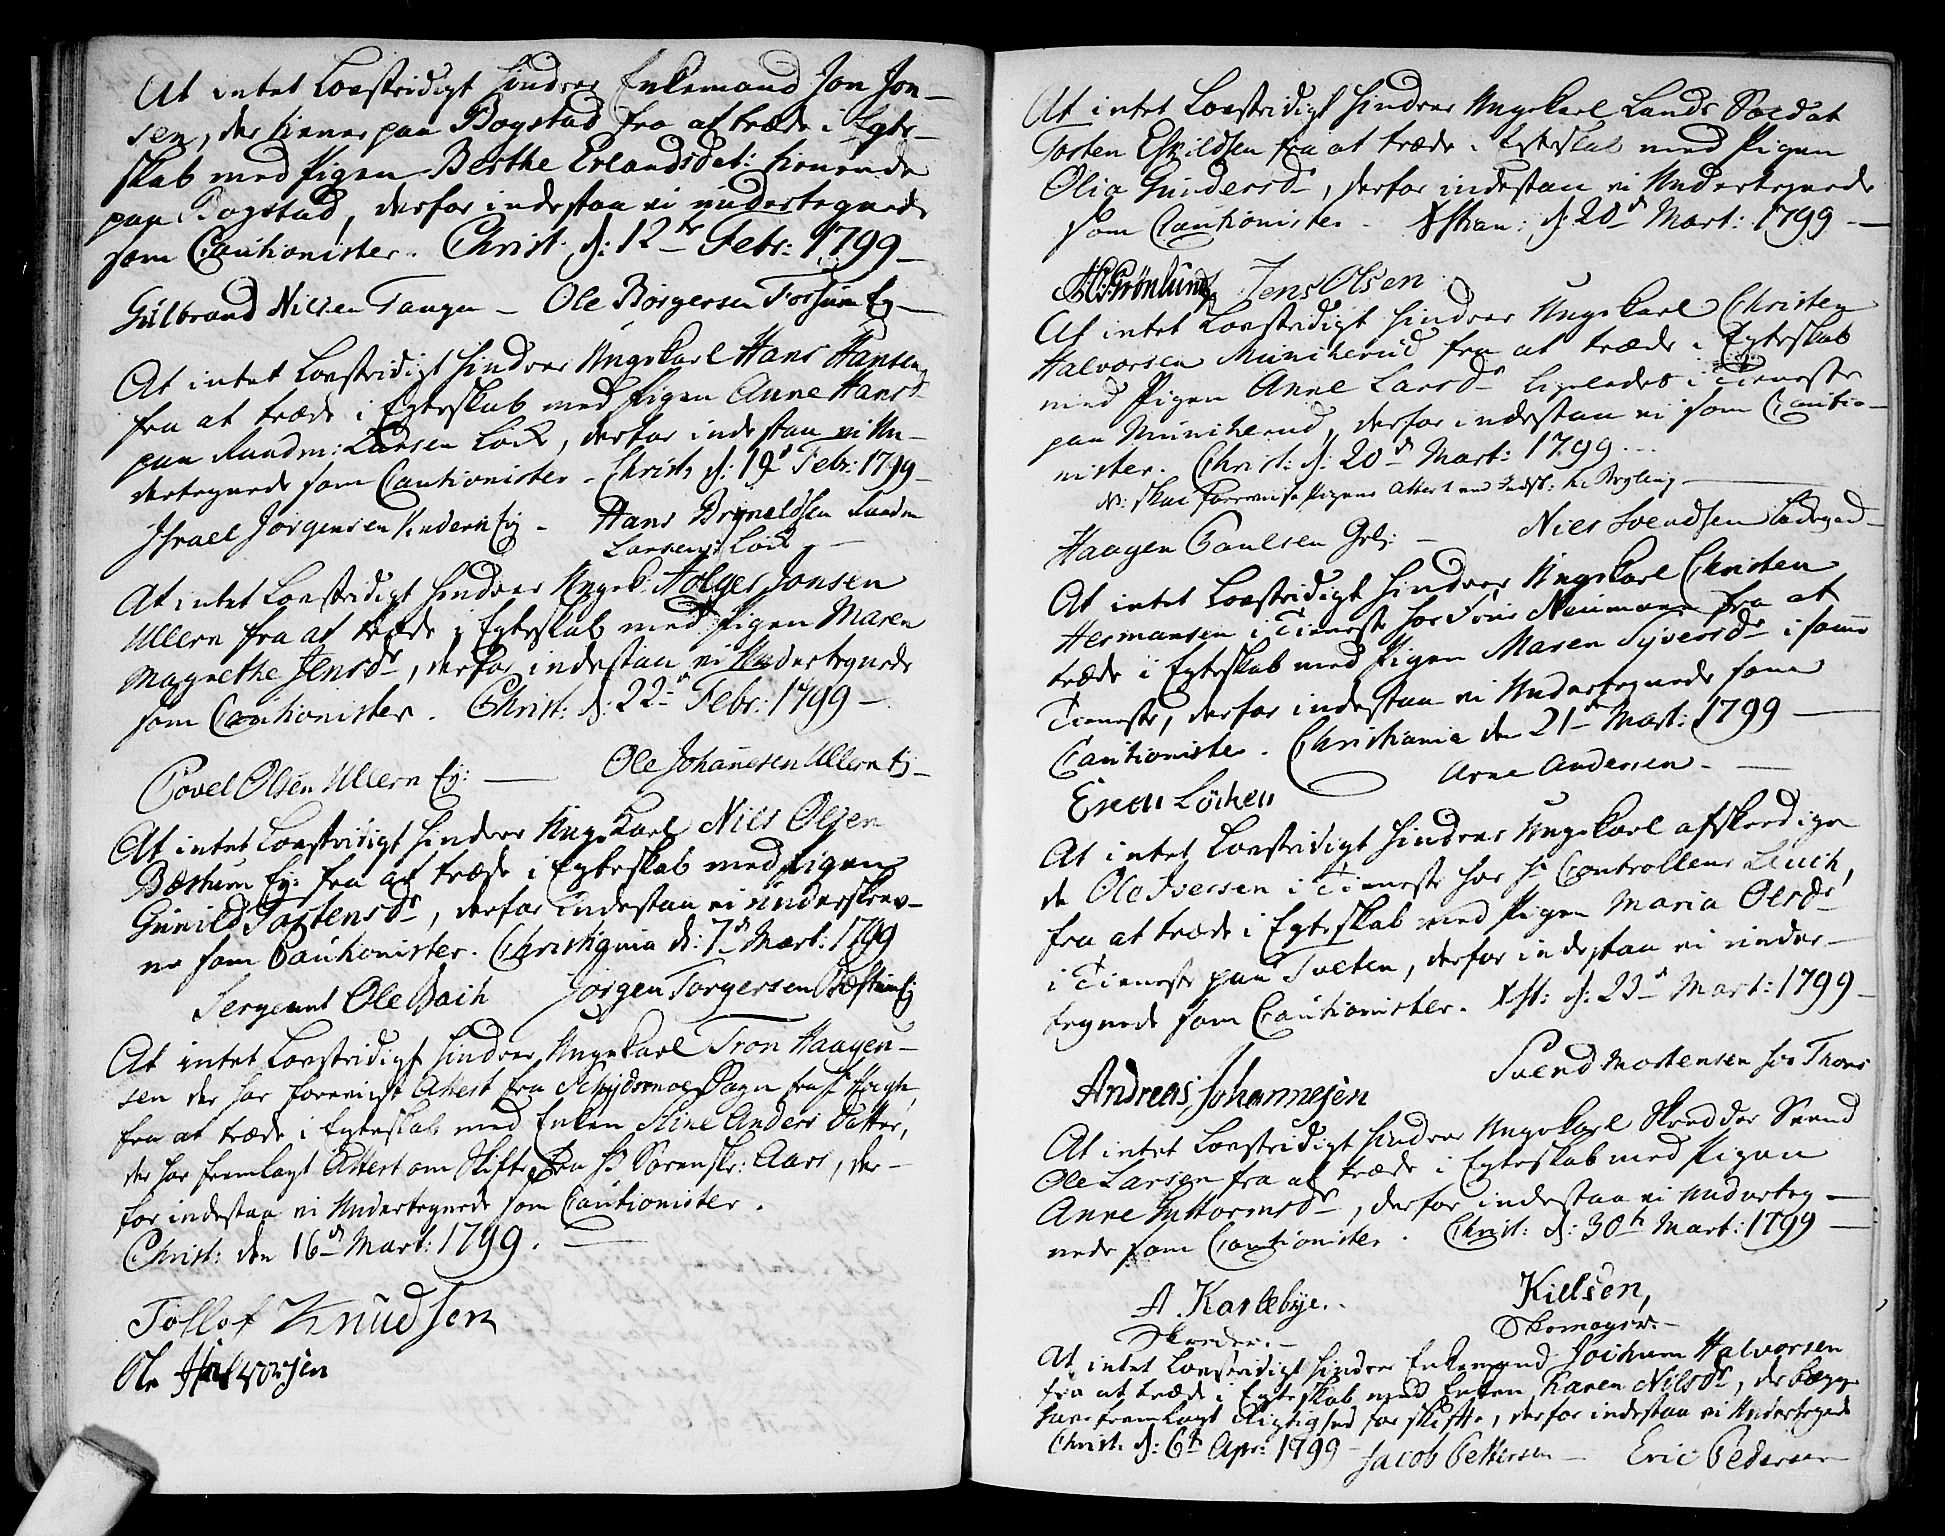 At intet Lovstridigt hindrer Enkemand Jon Jon-
sen, der tienner paa Bogstad fra at træde i Egte-
skab med Pigen Berthe Erlandsdat: tienende
paa Bogstad, derfor indestaa vi undertegnede
som Cautionister. Christ: d: 12te Febr: 1799 -
Gulbrand Nilsen Tangen - Ole Børgersen Fossum Ey -
At intet Lovstridigt hindrer Ungekarl Hans Hansen
fra at træde i Egteskab med Pigen Anne Hansd
paa Raadm: Larsen Løck, derfor indestaa vi Un-
dertegnede som Cautionister - Christ: d: 19d Febr: 1799 -
Israel Jørgensen Ey - Hans Bryneldsen Raadm
Larsens Løck -
At intet Lovstridigt hindrer Ungek: Holger Jonsen
Ullern fra at træde i Egteskab med Pigen Maren
Magrethe Jensdr, derfor indestaa vi Undertegnede
som Cautionister. Christ: d: 22d Febr: 1799 -
Povel Olsen Ullern Ey: - Ole Johannesen Ullern Ej -
At intet Lovstridigt hindrer Ungekarl Nils Olsen
Bæstum Ey: fra at træde i Egteskab med Pigen
Gunild Tostensdr, derfor indestaa vi underskrev-
ne som Cautionister. Christiania d: 7d Mart: 1799
Sergeant Ole Bach Jørgen Torgersen Bæstum Ej
At intet Lovstridigt hindrer Ungekarl Tron Haagen-
sen der har forevist Attest fra Schydsmoe Sogn fra Hr Høegh,
fra at træde i Egteskab med Enken Stine Anders Datter,
der har fremlagt Attest om Skifte fra Hr Sorenskr: Aars, der-
for indestaa vi Undertegnede som Cautionister.
Christ: den 16d Mart: 1799. -
Tollof Knudsen
Ole Halvorsen
At intet Lovstridigt hindrer Ungekarl Lands Soldat
Tosten Eskildsen fra at træde i Egteskab med Pigen
Olia Gundersdr, derfor indestaa vi Undertegnede
som Cautionister - Xstian: d: 20d Mart: 1799 -
Grønlund Jens Olsen
At intet Lovstridigt hindrer Ungekarl Christen
Halvorsen Munckerud fra at træde i Egteskab
med Pigen Anne Larsdr ligeledes i Tieneste
paa Munckerud, derfor indestaa vi som Cautio-
nister. Christ: d: 20d Mart: 1799...
skal forevise Pigens Attest
Haagen Paulsen - Niels Svendsen
At intet Lovstridigt hindrer Ungekarl Christen
Hermansen i Tieneste hos Frue Neumann fra at
træde i Egteskab med Pigen Maren Syversdr i samme
Tieneste, derfor indestaa vi Undertegnede som
Cautionister. Christiania den 21d Mart: 1799 -
Even Löchen Arne Andersen -
At intet Lovstridigt hindrer Ungekarl afskedige-
de Ole Iversen i Tieneste hos Hr Controlleur Leuch,
fra at træde i Egteskab med Pigen Maria Olsdr
i Tieneste paa Tveten, derfor indestaa vi under-
tegnede som Cautionister. Xst: d: 23d Mart: 1799 -
Andreas Johannesen Svend Mortensen hos Thoms
At intet Lovstridigt hindrer Ungekarl Skrædder Svend
Ole Larsen fra at træde i Egteskab med Pigen
Anne Guttormsdr, derfor indestaa vi Underteg-
nede som Cautionister. Christ: d: 30te Mart: 1799 -
A Karlebye. Kielsen,
Skræder. - Skomager. -
At intet Lovstridigt hindrer Enkemand Jochum Halvorsen
fra at træde i Egteskab med Enken Karen Nilsdr, de begge
have fremlagt Rigtighed for Skifte, derfor indestaa vi Undertegnede
Christ: d: 6te Apr: 1799 - Jacob Pettersen - Eric Pedersen